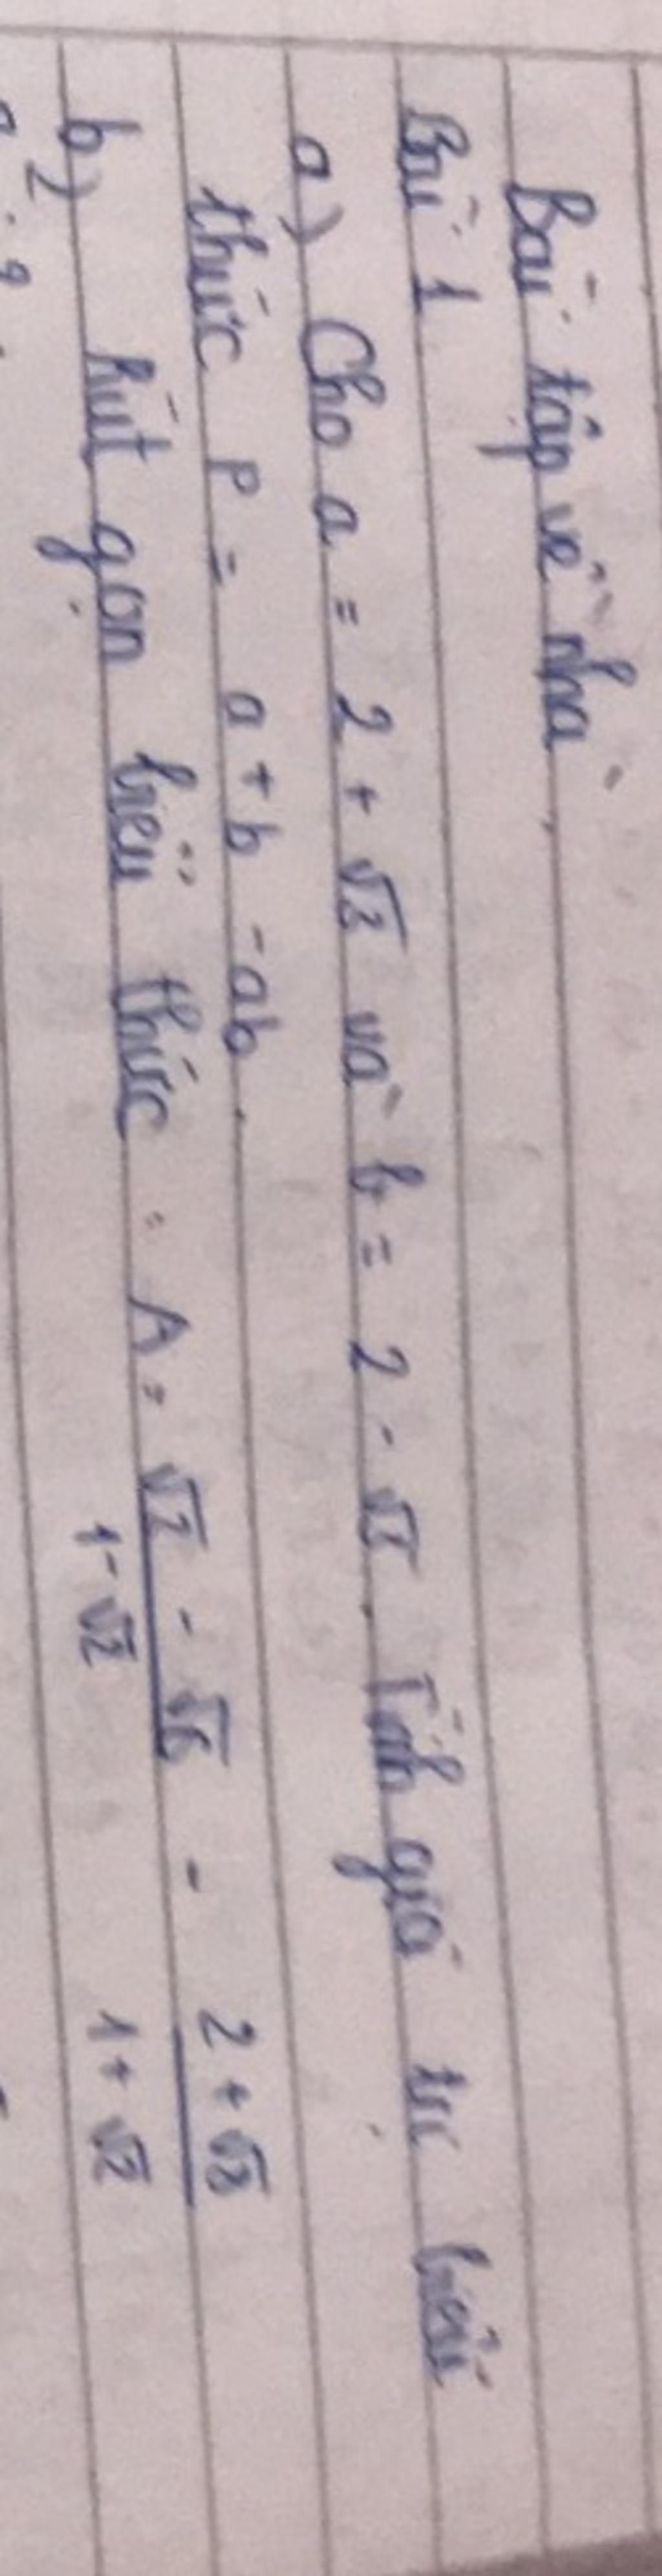 Bài tập về nhà
Bài 1
a) Cho a = 2 + √3 và b = 2 - √3. Tính giá trị biểu
thức P = a + b - ab.
b) Rút gọn biểu thức: A = (√2 - √6)/(1 - √2) - (2 + √8)/(1 + √2)